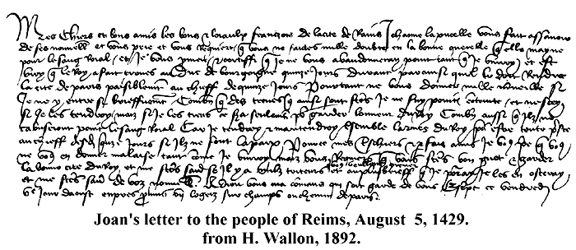 Mes Chiers et bons amis les bons et loyaulx franczois de la cite de Rains Jehanne la pucelle vous fait assavoir
de ses nouvelles et vous prie et vous requiert que vous ne faictes nulle doubte en la bonne querelle que elle mayne
pour le sang Roial et je vous promet et que je ne vous abandonneray point tant que je vivray et est
vray que le Roy a fait treves au duc de bourgoigne quinze jours durant par ainsi quil li doit Rendre
la cite de paris paisiblement au chieff de quinze jours Pourtant ne vous donnes nulle merveille si
je ne y entre si brieffvement Combien que des treves qui ainsi sont faictes je ne suy point contente et ne scey
si je les tendray mais si je les tiens ce sera seulement pour garder lonneur du Roy Combien aussi que ilz ne
point le sang Roial Car je tendray et maintendray ensemble larmee du Roy pour estre toute preste
au chieff quinze jours si ilz ne font la paix Pour ce mes et parfais amis je vous prie que vous
ne vous en donnes malaise tant comme je vivray mais vous requiers que vous faictes bon guet et garder
la bonne cite du Roy et me faictes savoir se il y a nulz triteurs que je pourray je les en osteray
et me faictes savoir de voz nouvelles A Dieu vous commans qui soit garde de vous Escript ce vendredi
jour daoust enpres provins un logeis sur champs ou chemin de paris
Joan's letter to the people of Reims, August 5, 1429.
from H. Wallon, 1892.